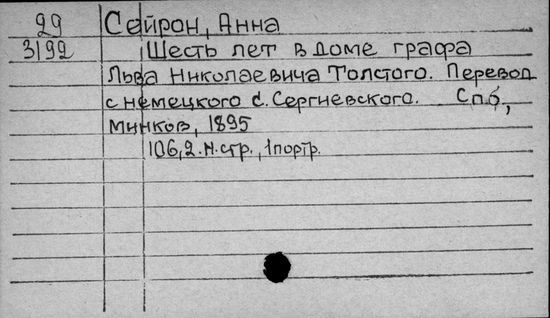 29 Сейрон, Анна
3192 Шесть лет в доме графа
Льва Николаевича Толстого. Перевод
с немецкого С. Сергиевского. Спб,
Минков, 1895
106, 2. н. стр., 1 портр.